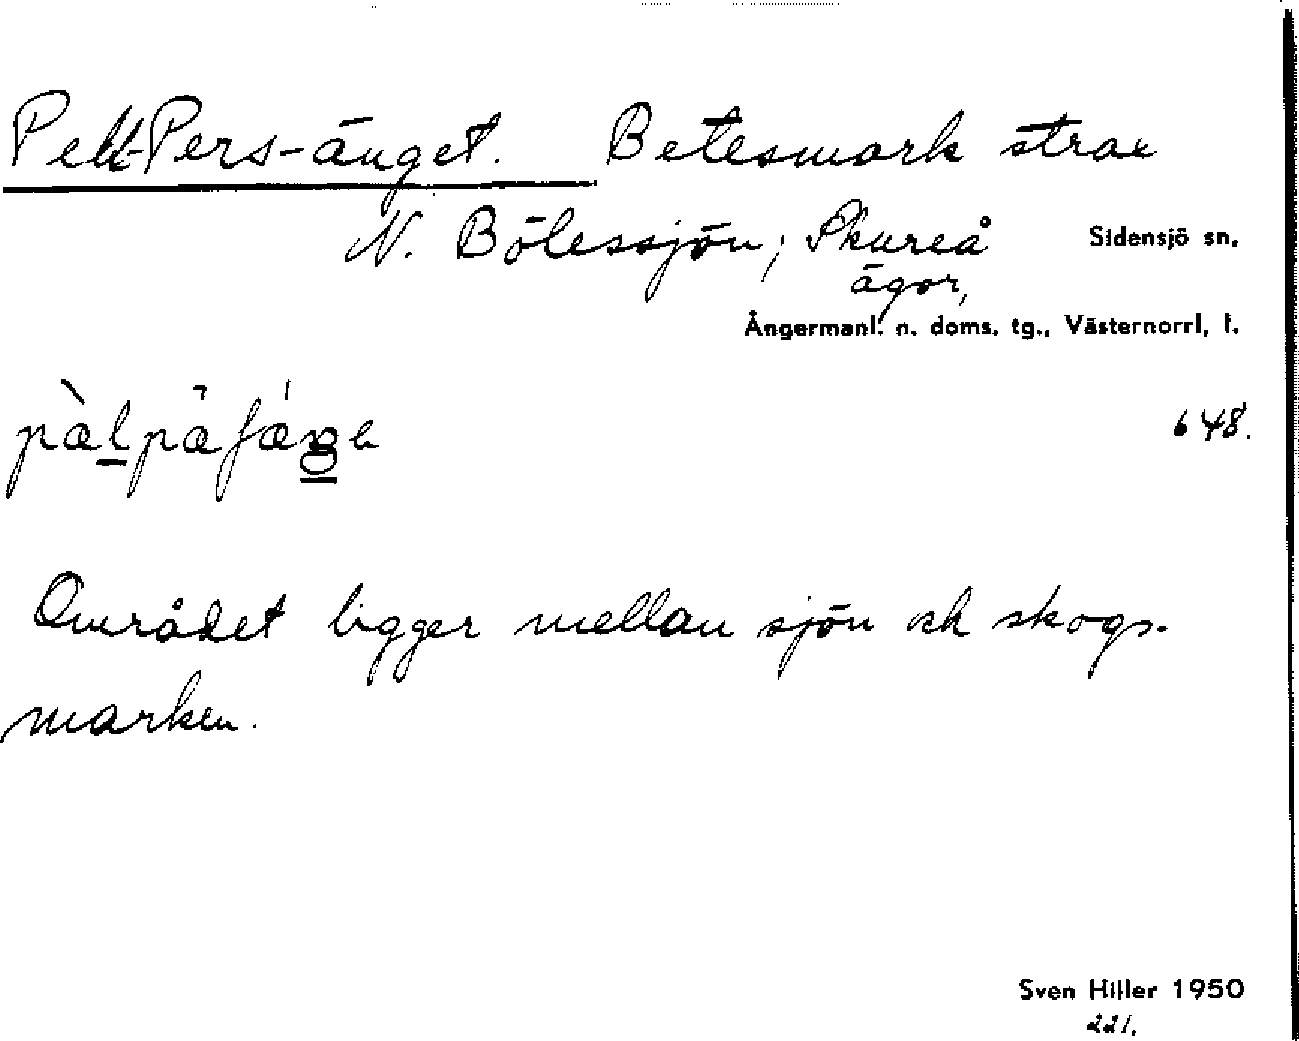 Pell-Pers-änget. Betesmark strax
N. Bölessjön; Skureå Sidensjö sn.
ägor,
Ångermanl. n. doms. tg., Västernorrl. l.
648.
Området ligger mellan sjön och skogs-
marken.
Sven Hiller 1950
221.